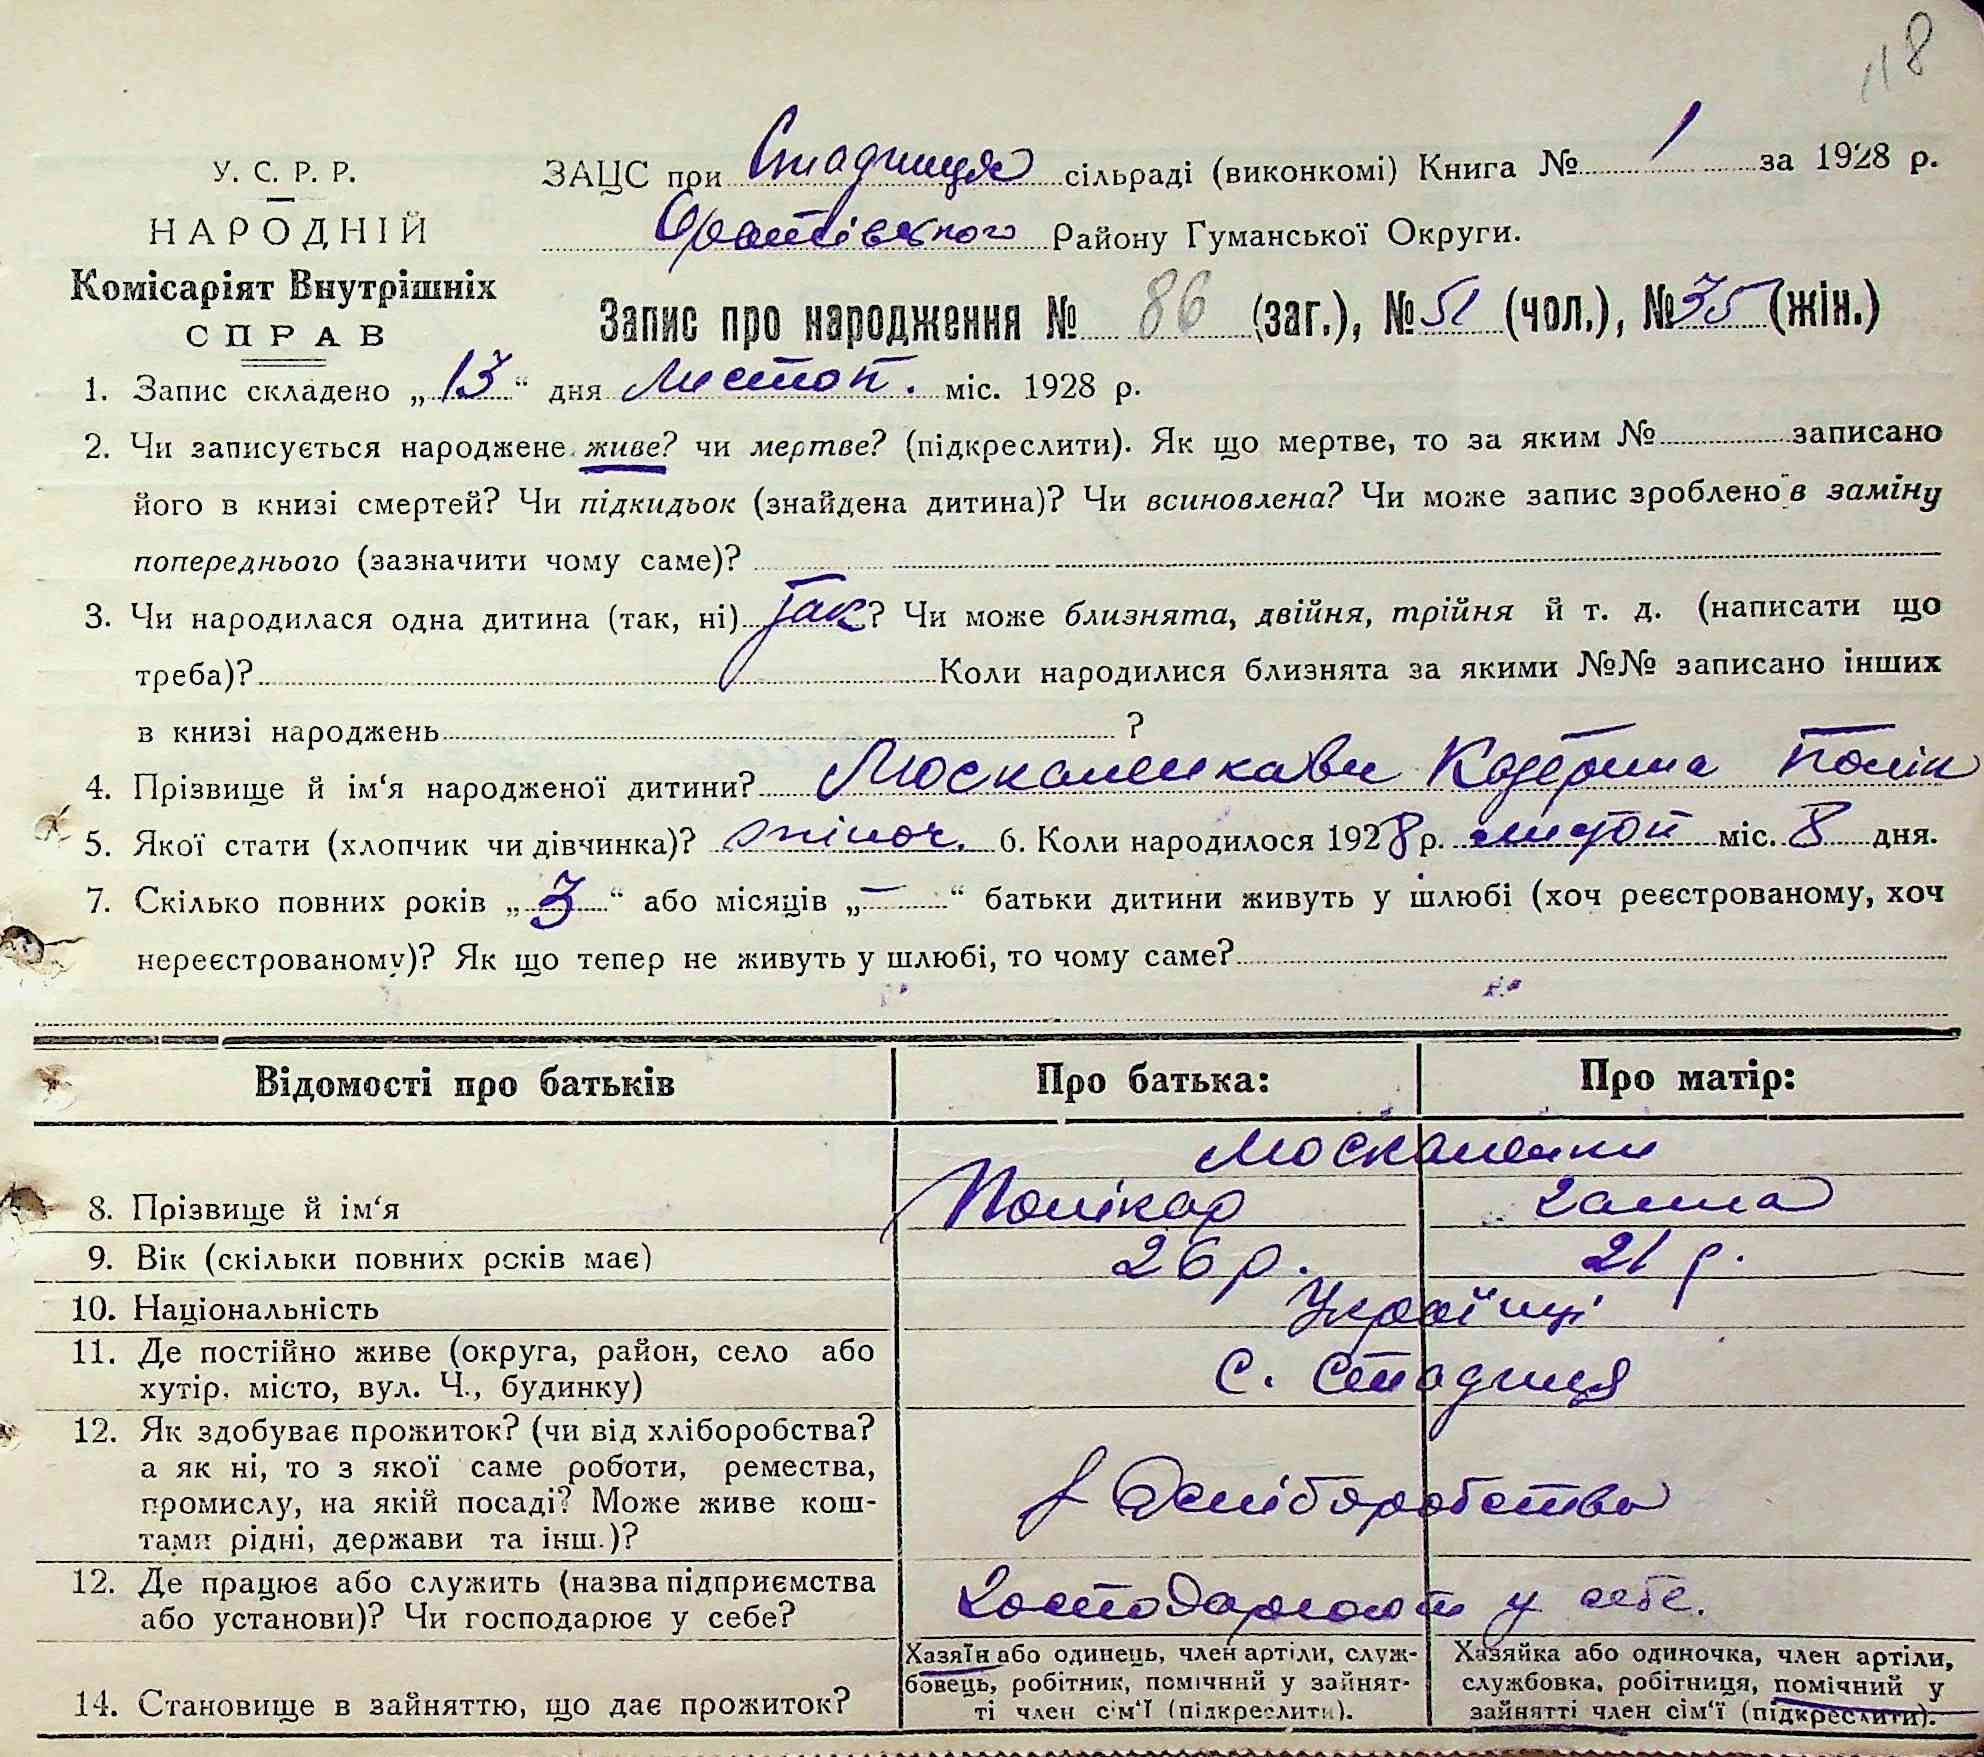 118
У. С. Р. Р.
НАРОДНІЙ
Комісаріят Внутрішніх
СПРАВ
ЗАЦС при Стадниця сільраді (виконкомі) Книга № 1 за 1928 р.
Району Гуманської Округи.
Запис про народження № 86 (заг.), № 51 (чол.), № 35 (жін.)
1. Запис складено „13“ дня листоп. міс. 1928 р.
2. Чи записується народжене живе? чи мертве? (підкреслити). Як що мертве, то за яким № записано
його в книзі смертей? Чи підкидьок (знайдена дитина)? Чи всиновлена? Чи може запис зроблено в заміну
попереднього (зазначити чому саме)?
3. Чи народилася одна дитина (так, ні) так? Чи може близнята, двійня, трійня й т. д. (написати що
треба)? Коли народилися близнята за якими №№ записано інших
в книзі народжень ?
4. Прізвище й ім‘я народженої дитини? Катерина Полік
5. Якої стати (хлопчик чи дівчинка)? жіноч. 6. Коли народилося 1928 р. листоп міс. 8 дня.
7. Скілько повних років „3“ або місяців „—“ батьки дитини живуть у шлюбі (хоч реєстрованому, хоч
нереєстрованому)? Як що тепер не живуть у шлюбі, то чому саме?
Відомості про батьків Про батька: Про матір:
Москаленки
8. Прізвище й ім‘я Полікар Ганна
9. Вік (скільки повних рсків має) 26 р. 21 р.
10. Національність Українці
11. Де постійно живе (округа, район, село або
хутір, місто, вул. Ч., будинку) С. Стадниця
12. Як здобуває прожиток? (чи від хліборобства?
а як ні, то з якої саме роботи, ремества,
промислу, на якій посаді? Може живе кош-
тами рідні, держави та інш.)? з хліборобства
12. Де працює або служить (назва підприємства
або установи)? Чи господарює у себе? Господарюють у себе.
14. Становище в зайняттю, що дає прожиток?
Хазяїн або одинець, член артіли, служ-
бовець, робітник, помічний у зайнят-
ті член сім‘ї (підкреслити).
Хазяйка або одиночка, член артіли,
службовка, робітниця, помічний у
зайнятті член сім‘ї (підкреслити).